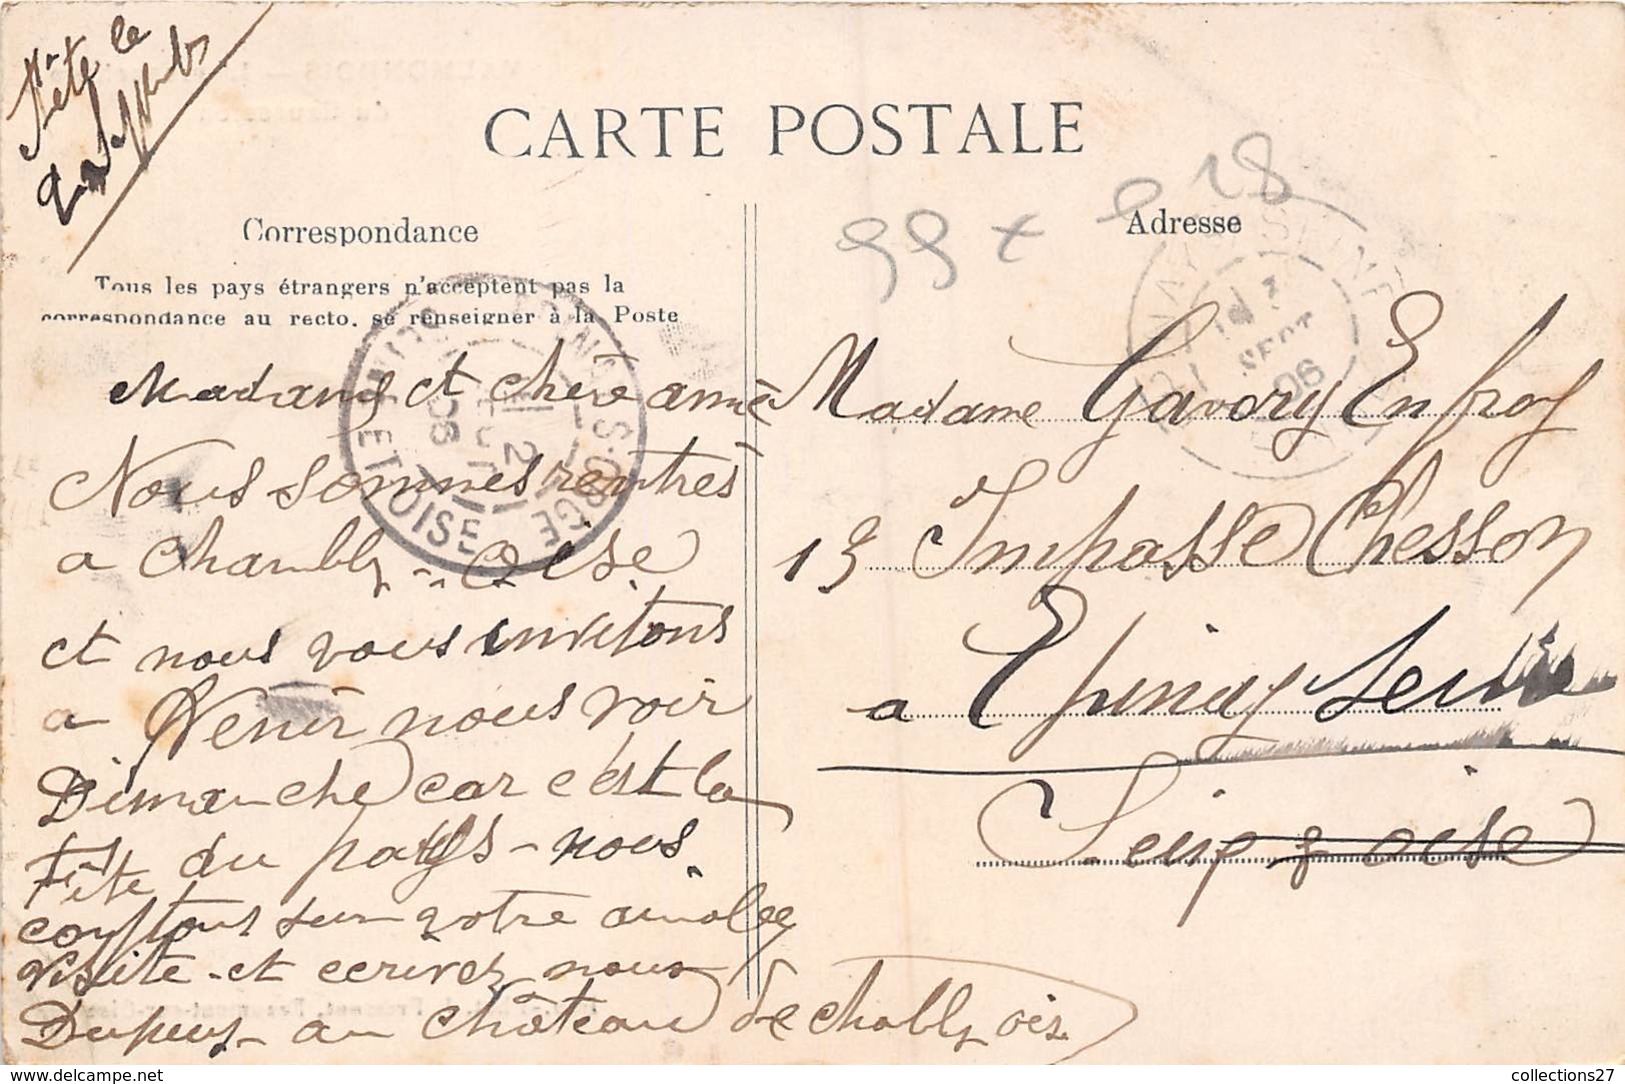 Fête le
2 Septembre
CARTE POSTALE
Correspondance
Adresse
99 + e 28
Tous les pays étrangers n'acceptent pas la
correspondance au recto, se renseigner à la Poste
Madame et chère amie
Nous sommes rentrés
a Chambly - Oise
et nous vous invitons
a Venir nous voir
Dimanche car c'est la
Fête du pays - nous
comptons sur votre aimable
visite - et ecrivez nous
Dupuis - au château de Chambly oise
Madame Gavory Enfroy
13 Impasse Chesson
a Epinay Seine
Seine & oise
SEPT
06
SEINE ET OISE
collections27